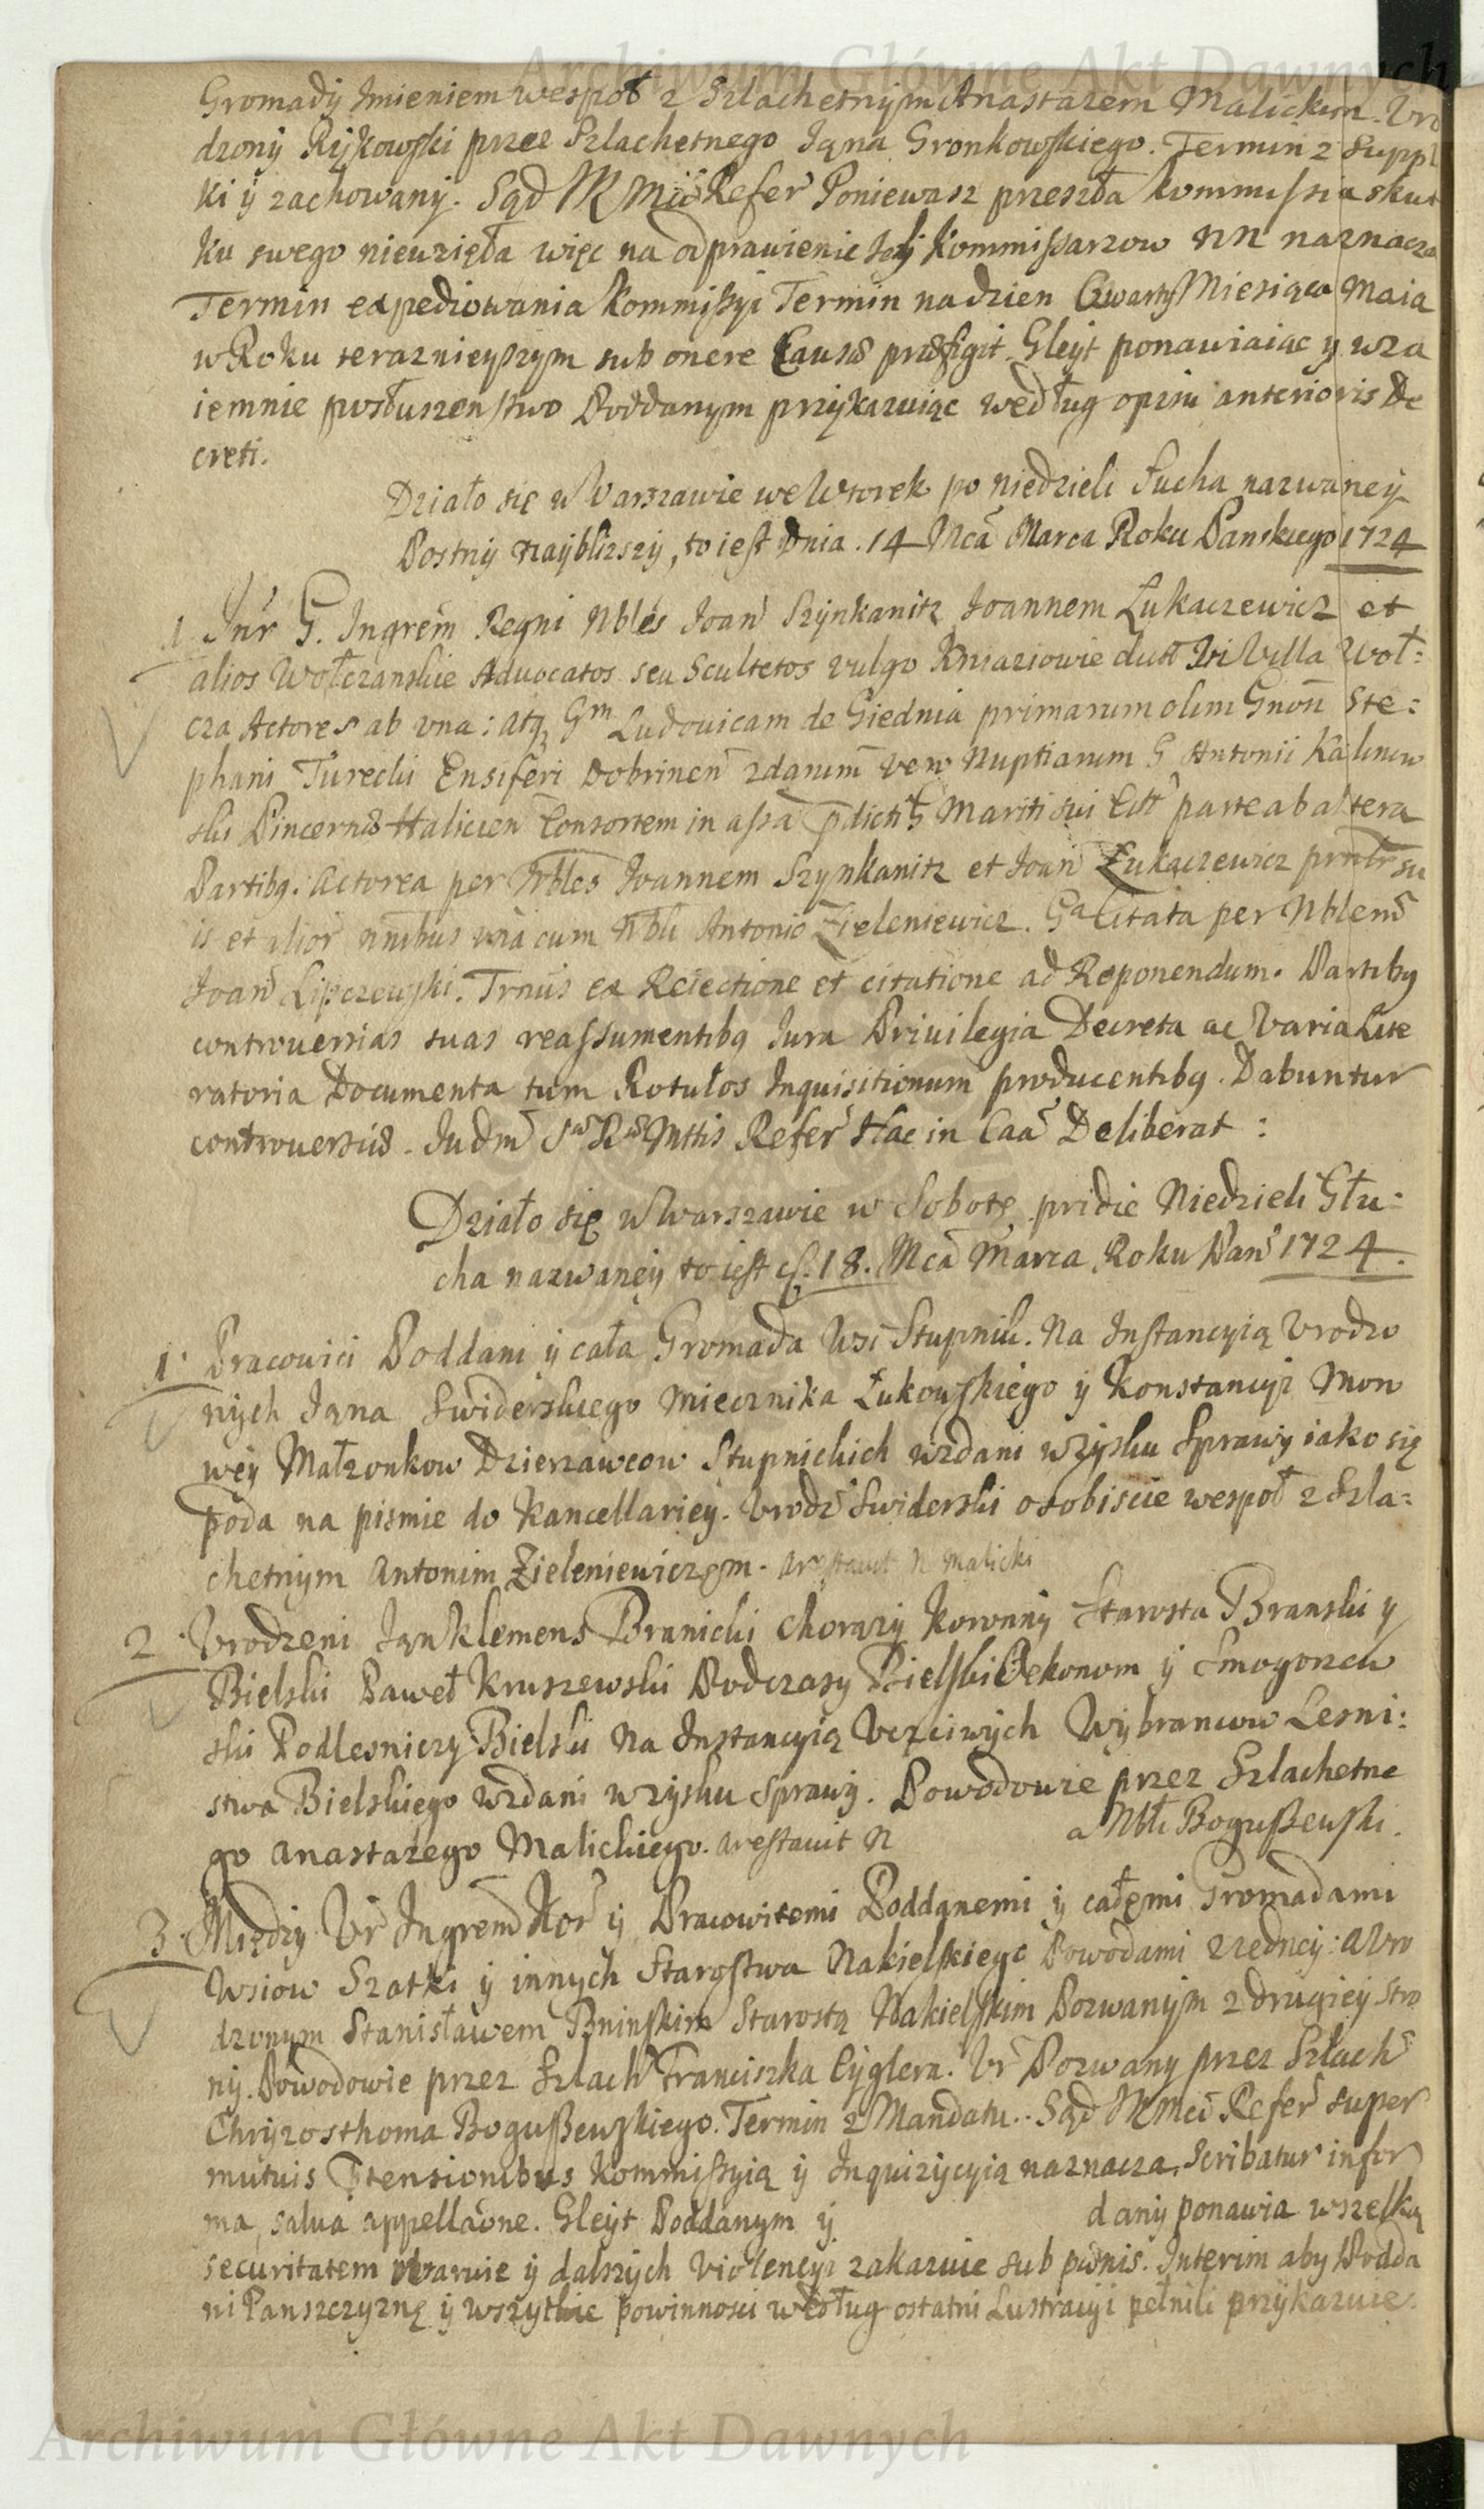 Archiwum Główne Akt Dawnych
Gromady Imieniem wespoł z Szlachetnym Anastazem Malickim. Vro
dzony Ryxowski przez Szlachetnego Jąna Gronkowskiego. Termin z Suppl
ki y zachowany. Sąd JKMci Refer Poniewasz przeszła kommissia skut
ku swego niewzięła więc na odprawienie Kommissarzow NN naznacza
Termin expediowania Kommissyi Termin na dzien Czwarty Miesiąca Maia
w Roku terazniejszym sub onere Causæ præfigit. Gleyt ponawiaiąc y wza
iemnie posłuszenstwo Poddanym przykazuiąc według opisu anterioris De
creti.
Działo się w Warszawie we Wtorek po niedzieli Sucha nazwaney
Postny naybliższy, to iest Dnia. 14 Mcá Marca Roku Panskiego 1724
1 Inr G. Ingrem Regni Nbles Joan Szynkanitz Joannem Łukaczewicz et
alios Wołczanskie Advocatos seu Scultetos vulgo Kniaziowie dictos Vi Villa Woł:
cza Actores ab una: atq Gm Ludovicam de Giednia primarum olim Gnoii Ste:
phani Turecki Ensiferi Dobrinen 2darum vero Nuptiarum G Antonii Kalinow
ski Pincernæ Halicien Consortem in assa pdicti G Mariti sui Citt parte ab altera
Partibq. Actorea per Nbles Joannem Szynkanitz et Joan Łukaczewicz su
is et alior nnibus unà cum Nbli Antonio Zieleniewicz. Ga Citata per Nblem
Joan Lipczewski. Trnus ex Reiectione et citatione ad Reponendum. Partibq
controuersias suas reassumentibq Jura Privilegia Decreta ac Varia Lite
ratoria Documenta tum Rotulos Inquisitionum producentibq. Dabuntur
controuersiis. Judm Sæ Ræ Mttis Refer Hac in Caa Deliberat:
Działo się w Warszawie w Sobotę pridie Niedzieli Głu:
cha nazwaney to iest d. 18. Mcá Marca Roku Pan 1724.
1. Pracowici Poddani y cała Gromada Wsi Stupnik. Na Instancyią Vrodzo
nych Jąna Swiderskiego Miecznika Łukowskiego y Konstancyi Mon
wey Małzonkow Dzierzawcow Stupnickich wzdani wzysku Sprawy iako się
poda na pismie do Kancellariey. Vrodz Swiderski osobiscie wespoł z Szla:
chetnym Antonim Zieleniewiczem. Arestavit N Malicki
2 Vrodzeni Jąn Klemens Branicki Chorązy Koronny Starosta Branski y
Bielski Paweł Kruszewski Podczaszy Bielski Oekonom y Smogorzew
ski Podlesniczy Bielski Na Instancyią Vczciwych Wybrancow Lesni:
stwa Bielskiego wzdani wzysku Sprawy. Powodowie przez Szlachetne
go Anastazego Malickiego. Arestauit N a Nbli Bogussewski.
3 Między Vr Ingrem Kor y Pracowitemi Poddanemi y całemi Gromadami
Wsiow Szatki y innych Starostwa Nakielskiego Powodami z iedney: a Vro
dzonym Stanisławem Bninskim Starostą Nakielskim Pozwanym z drugiey Stro
ny. Powodowie przez Szlach Franciszka Cyglera. Vr Pozwany przez Szlach
Chryzosthoma Bogussewskiego. Termin z Mandatu.. Sąd JKMci Refer super
mutuis Ptensionibus Kommissyią y Inquizycyią naznacza. Scribatur in for
ma, salva appellaone. Gleyt Poddanym y dany ponawia wszelką
securitatem waruie y dalszych Violencyi zakazuie sub pœnis. Interim aby Podda
ni Panszczyznę y wszytkie powinnosci według ostatni Lustracyi pełnili przykazuie.
Archiwum Główne Akt Dawnych